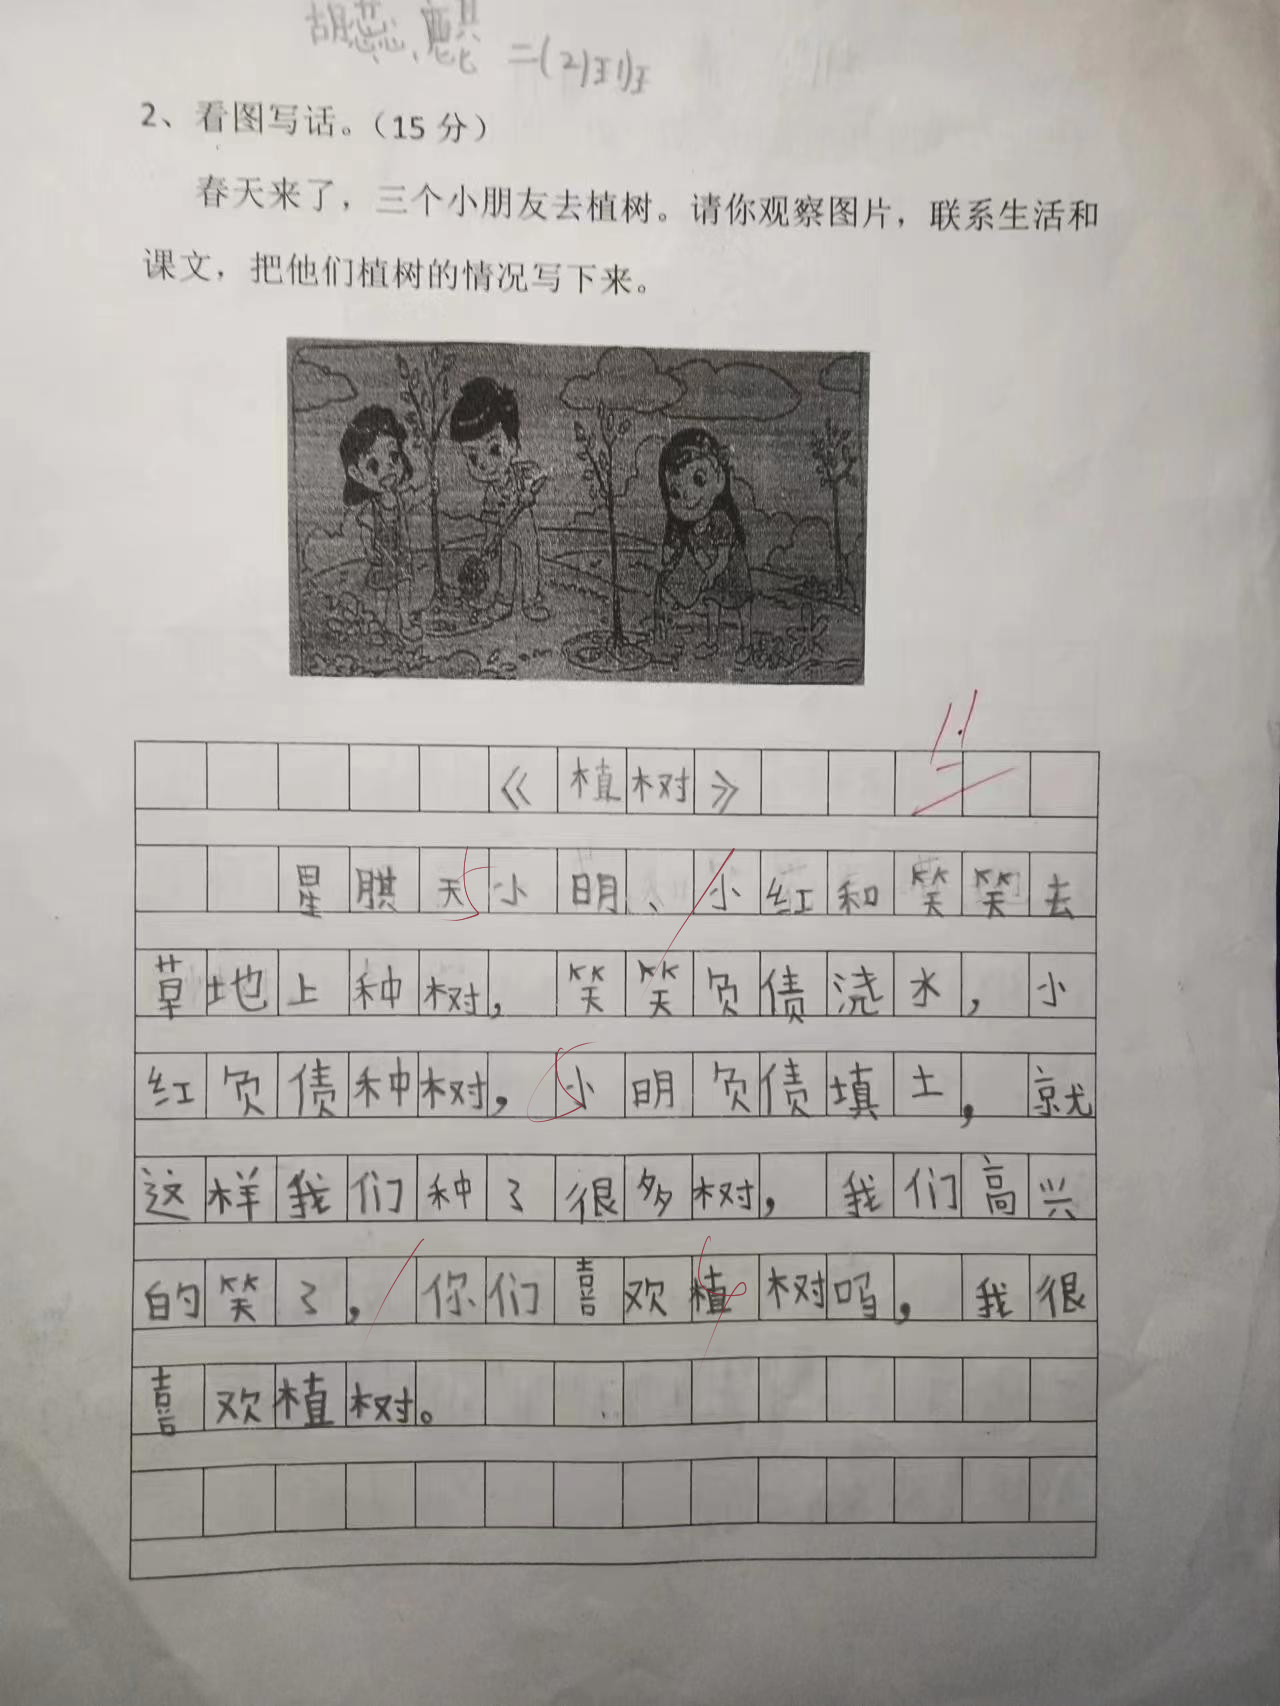 胡蕊麒 二(2)班
2、看图写话。（15 分）
春天来了，三个小朋友去植树。请你观察图片，联系生活和
课文，把他们植树的情况写下来。
11
《植树》
星期天小明、小红和笑笑去
草地上种树，笑笑负债浇水，小
红负债种树，小明负债填土，就
这样我们种了很多树，我们高兴
的笑了，你们喜欢植树吗，我很
喜欢植树。